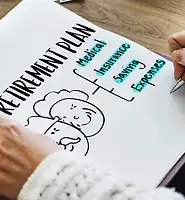 RETIREMENT PLAN
Medical
Insurance
Saving
Expenses